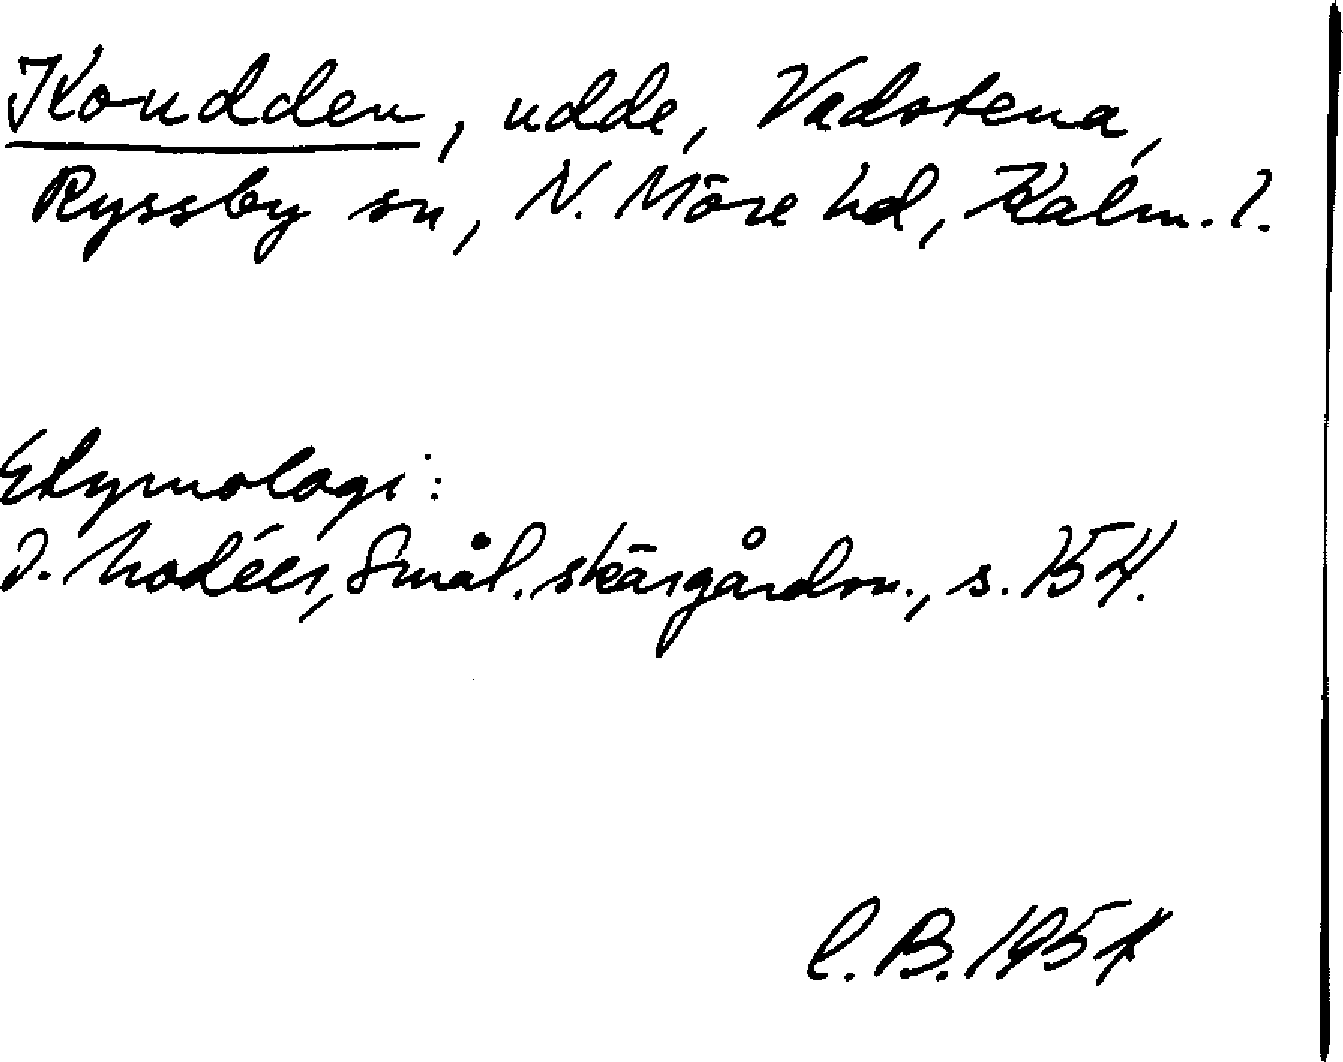 Koudden, udde, Vadstena,
Ryssby sn, N. Möre hd, Kalm. l.
Etymologi:
I. Modéer, Smål. skärgårdsn., s. 154.
C. B. 195